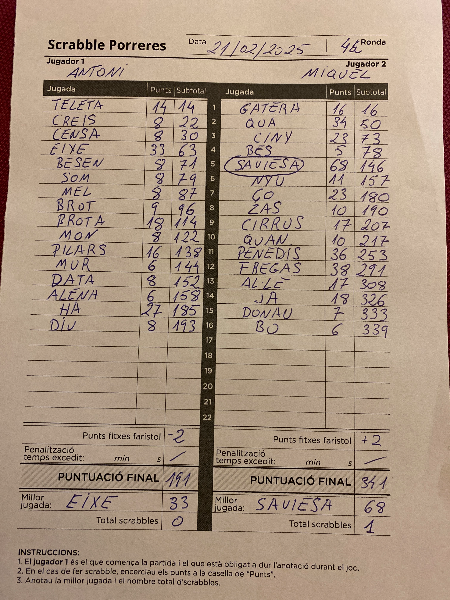 Scrabble Porreres Data 21/02/2025 4a Ronda
Jugador 1 Jugador 2
ANTONI MIQUEL
Jugada Punts Subtotal Jugada Punts Subtotal
TELETA 14 14 1 GATERA 16 16
CREIS 8 22 2 QUA 34 50
CENSA 8 30 3 CINY 23 73
EIXE 33 63 4 BES 5 78
BESEN 8 71 5 SAVIESA 68 146
SOM 8 79 6 NYU 11 157
MEL 8 87 7 GO 23 180
BROT 9 96 8 ZAS 10 190
BROTA 18 114 9 CIRRUS 17 207
MON 8 122 10 QUAN 10 217
PILARS 16 138 11 PENEDIS 36 253
MUR 6 144 12 FREGAS 38 291
DATA 8 152 13 ALLE 17 308
ALENA 6 158 14 JA 18 326
HA 27 185 15 DONAU 7 333
DIU 8 193 16 BO 6 339
17
18
19
20
21
22
Punts fitxes faristol -2 Punts fitxes faristol +2
Penalització temps excedit: min s / Penalització temps excedit: min s /
PUNTUACIÓ FINAL 191 PUNTUACIÓ FINAL 341
Millor jugada: EIXE 33 Millor jugada: SAVIESA 68
Total scrabbles 0 Total scrabbles 1
INSTRUCCIONS:
1. El jugador 1 és el que comença la partida i el que està obligat a dur l'anotació durant el joc.
2. En el cas de fer scrabble, encerclau els punts a la casella de "Punts".
3. Anotau la millor jugada i el nombre total d'scrabbles.